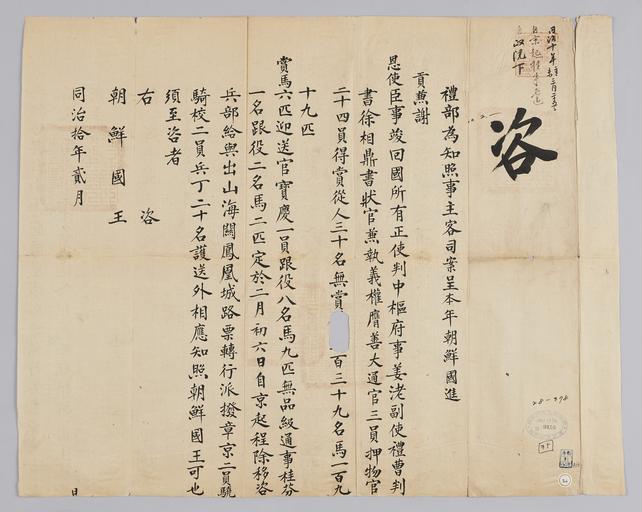 咨
禮部為知照事主客司案呈本年朝鮮國進
貢兼謝
恩使臣事竣回國所有正使判中樞府事姜㳣副使禮曹判
書徐相鼎書狀官兼執義權膺善大通官三員押物官
二十四員得賞從人三十名無賞 百三十九名馬一百九
十九匹
賞馬六匹迎送官寶慶一員跟役八名馬九匹無品級通事桂芬
一名跟役二名馬二匹定於二月初六日自京起程除移咨
兵部給與出山海關鳳凰城路票轉行派撥章京二員驍
騎校二員兵丁二十名護送外相應知照朝鮮國王可也
須至咨者
右咨
朝鮮國王
同治拾年貳月
28-298